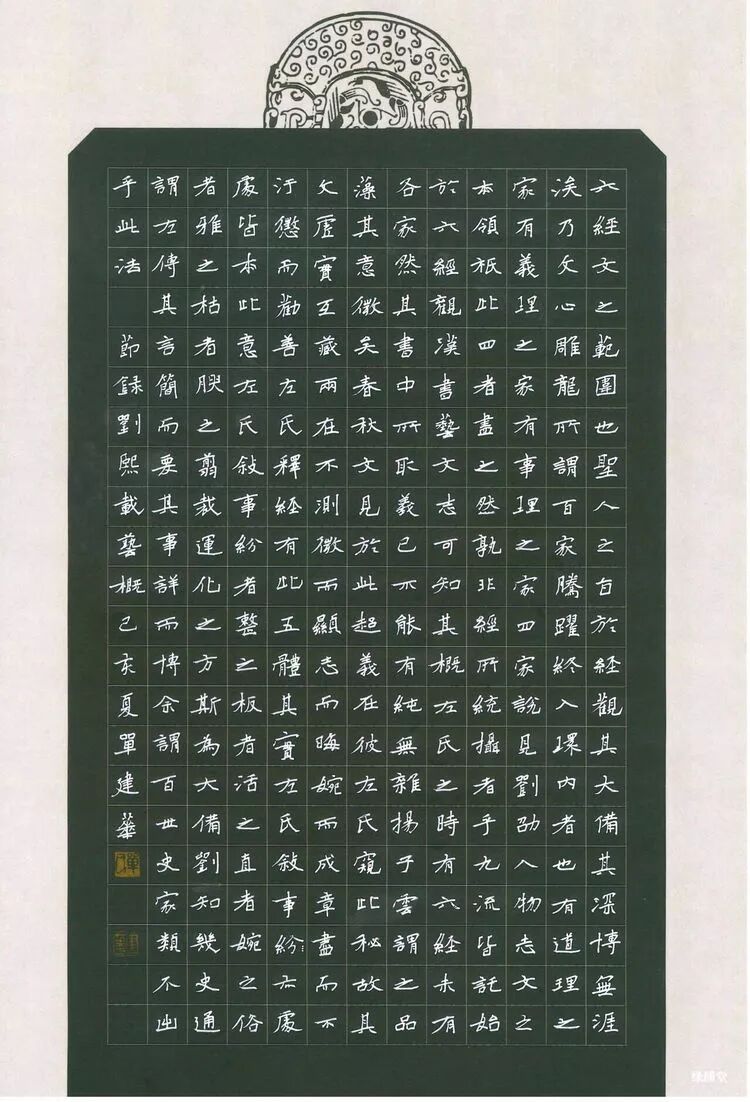 六經文之範圍也聖人之旨於經觀其大備其深博無涯
涘乃文心雕龍所謂百家騰躍終入環內者也有道理之
家有義理之家有事理之家四家說見劉劭人物志文之
本領祇此四者盡之然孰非經所統攝者乎九流皆託始
於六經觀漢書藝文志可知其概左氏之時有六經未有
各家然其書中所取義已不能有純無雜揚子雲謂之品
藻其意微矣春秋文見於此起義在彼左氏窺此秘故其
文虛實互藏兩在不測微而顯志而晦婉而成章盡而不
汙懲而勸善左氏釋經有此五體其實左氏敘事紛:亦處
處皆本此意左氏敘事紛者整之板者活之直者婉之俗
者雅之枯者腴之剪裁運化之方斯為大備劉知幾史通
謂左傳其言簡而要其事詳而博余謂百世史家類不出
乎此法 節録劉熙載藝概己亥夏單建華